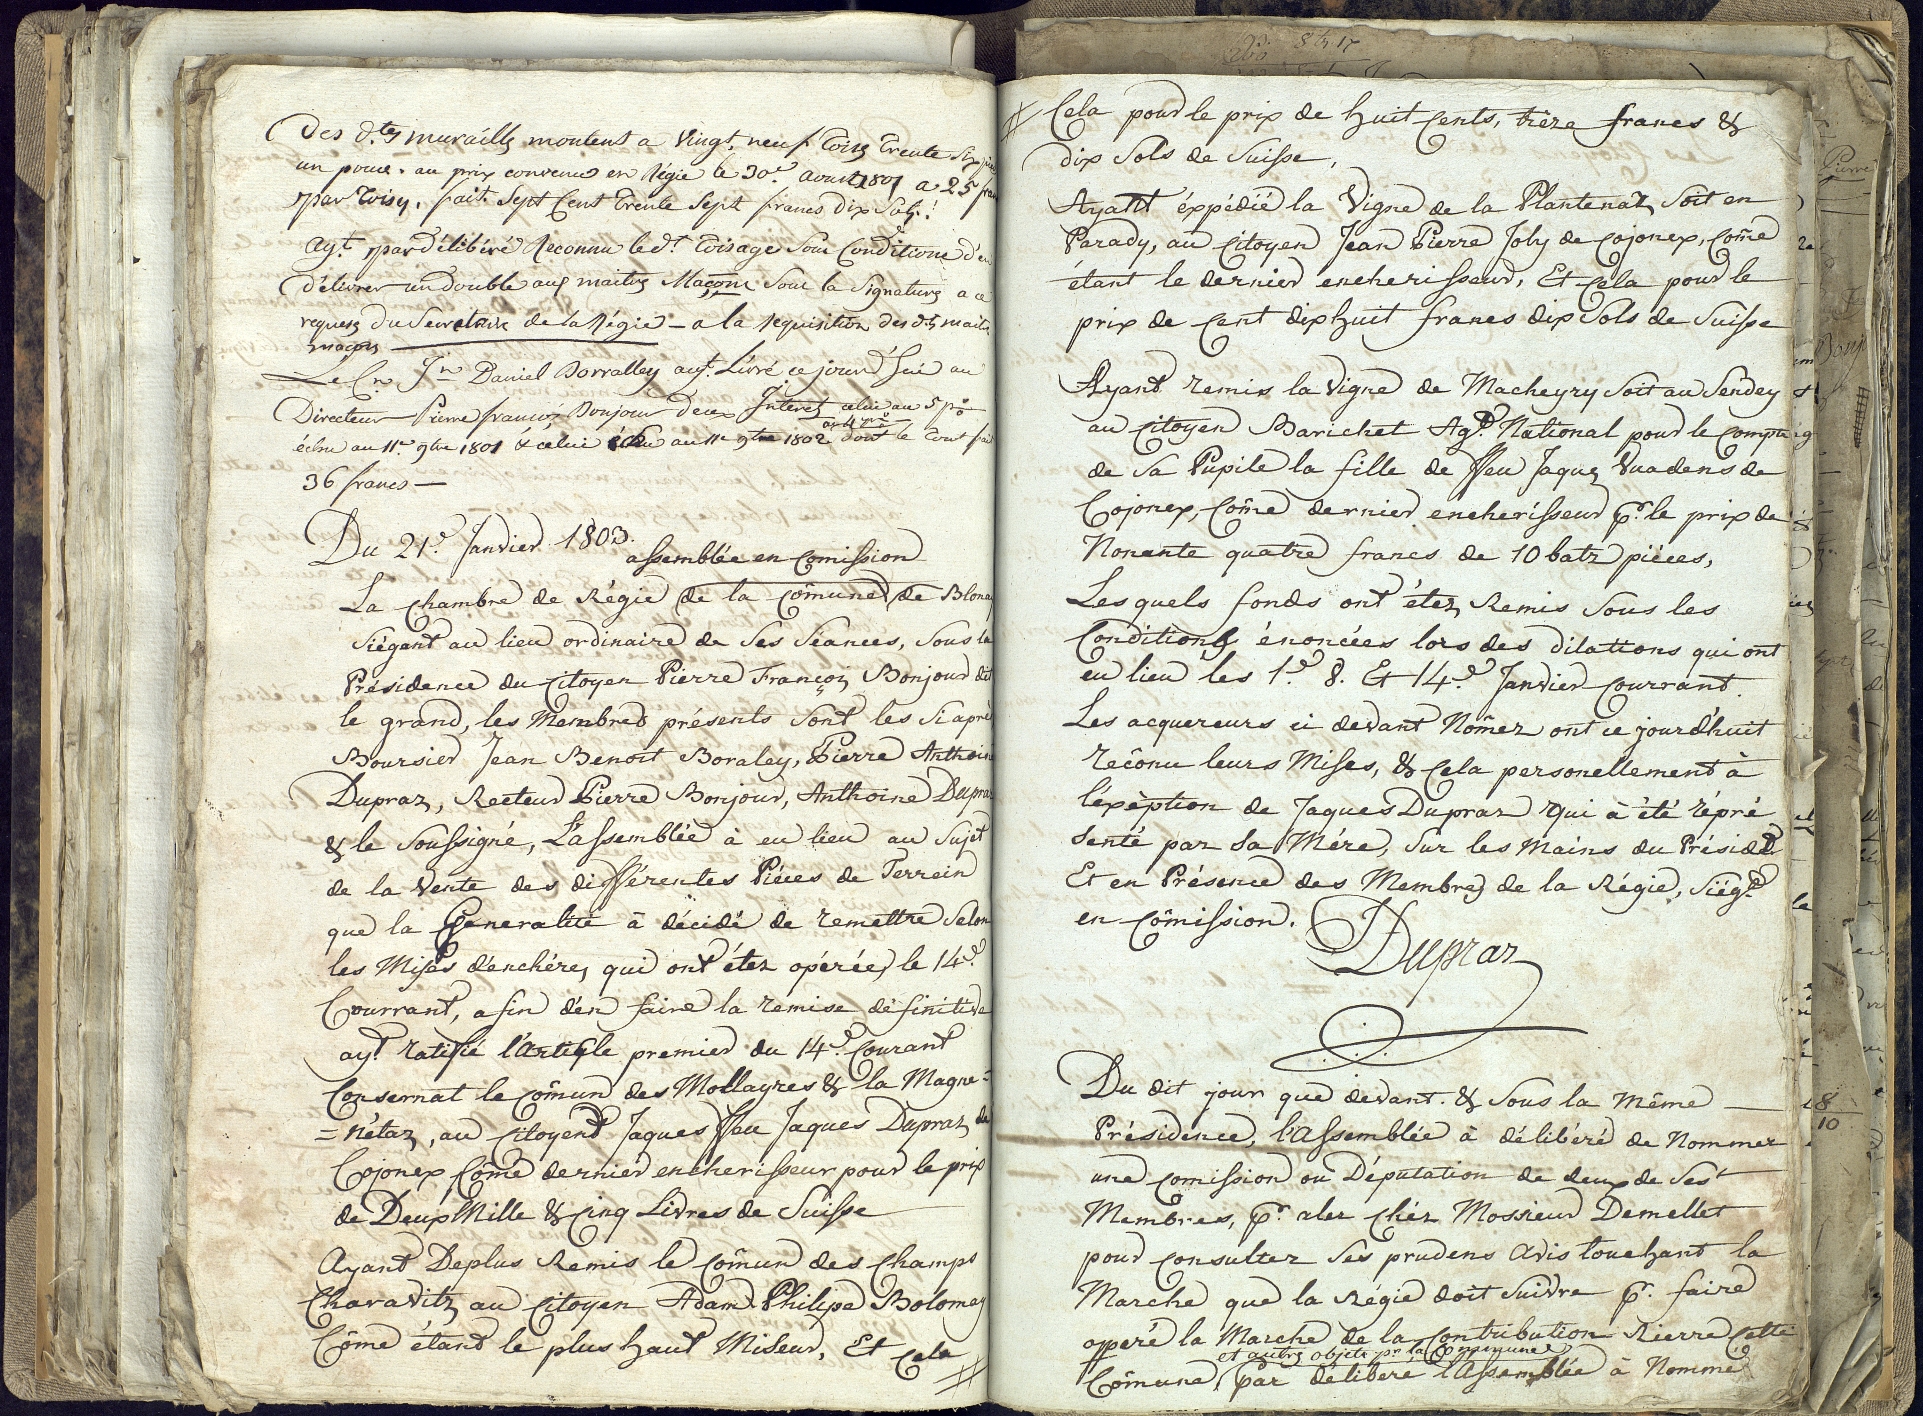 Des d.tes muraille montent a Vingt neuf Toise Trente Six pie
un pouce. au prix convenu en Régie le 30.e avoust 1801 a 25 fran
par Toise. fait Sept Cent Trente Sept francs dix Sols.
ay.t par délibéré Reconnu le d.t Toisage Sous Conditions d'en
délivrer un double aux maitres Maçons Sous la Signature a ce
requise du Secretaire de la Régie - a la requisition des d.ts maitr
maçons
Le C.n J.n Daniel Borralley ay.t Livré ce jourd'hui au
Directeur Pierre françois Bonjour deux Interet celui au 5 p%
au 4 p%
échu au 11.e 9bre 1801 & celui échu au 11.e 9bre 1802 dont le Tout fai
36 francs —
Du 21.e Janvier 1803.
assemblée en Comission
La Chambre de Régie de la Cômune de Blonay
Siégant au lieu ordinaire de Ses Séances, Sous la
Présidence du Citoyen Pierre François Bonjour dit
le grand, les Membres présents Sont les Si après
Boursier Jean Benoit Boraley, Pierre Anthoine
Dupraz, Recteur Pierre Bonjour, Anthoine Dupraz
& le Soussigné, L'assemblée à eu lieu au Sujet
de la Vente des différentes Piéces de Terrein
que la Generalité à décidé de remettre Selon
les Mises d'enchéres qui ont étez opérées le 14.e
Courrant, afin d'en faire la remise définitive
ay.t ratifié l'Article premier du 14.e Courant
Consernat le Cômun des Mollayres & la Magne=
=nétaz, au Citoyent Jaques ffeu Jaques Dupraz de
Cojonex Côme dernier encherisseur pour le prix
de Deux Mille & Cinq Livres de Suisse
Ayant Deplus Remis le Cômun des Champs
Charavitz au Citoyen Adam Philipe Bolomey
Côme étant le plus haut Miseur, Et Cela
#
# Cela pour le prix de huit Cents, trèze francs &
dix Sols de Suisse,
Ayant éxpédié la Vigne de la Plantenaz Soit en
Parady, au Citoyen Jean Pierre Joly de Cojonex, Côme
étant le dernier encherisseur, Et Cela pour le
prix de Cent dix huit francs dix Sols de Suisse
Ayant remis la Vigne de Macheyry Soit au Sendey
au Citoyen Barichet Ag.t National pour le Compte
de Sa Pupile la fille de ffeu Jaques Vuadens de
Cojonex, Côme dernier encherisseur p.r le prix de
Nonante quatre francs de 10 batz piéces,
Lesquels fonds ont étez Remis Sous les
Conditions énoncées lors des dilations qui ont
eu lieu les 1.e 8. Et 14.e Janvier Courrant.
Les acquereurs ci devant Nômez ont ce jourd'huit
recônu leurs Mises, & Cela personellement à
l'éxèption de Jaques Dupraz qui à été répré
senté par Sa Mére, Sur les Mains du Présid.t
Et en Présence des Membres de la Régie, Siég.t
en Cômission.
Dupraz
Du dit jour que devant. & Sous la Même
Présidence, l'Assemblée à délibéré de Nommer
une Comission ou Députation de deux de Ses
Membres, p.r aler chéz Mossieur Demellet
pour consulter Ses prudens Avis touchant la
Marche que la Régie doit Suivre p.r faire
opperé la Marche de la Contribution Rierre Cette
et autres objets p.r la Commune
Cômune, Par délibéré l'Assemblée à Nommé